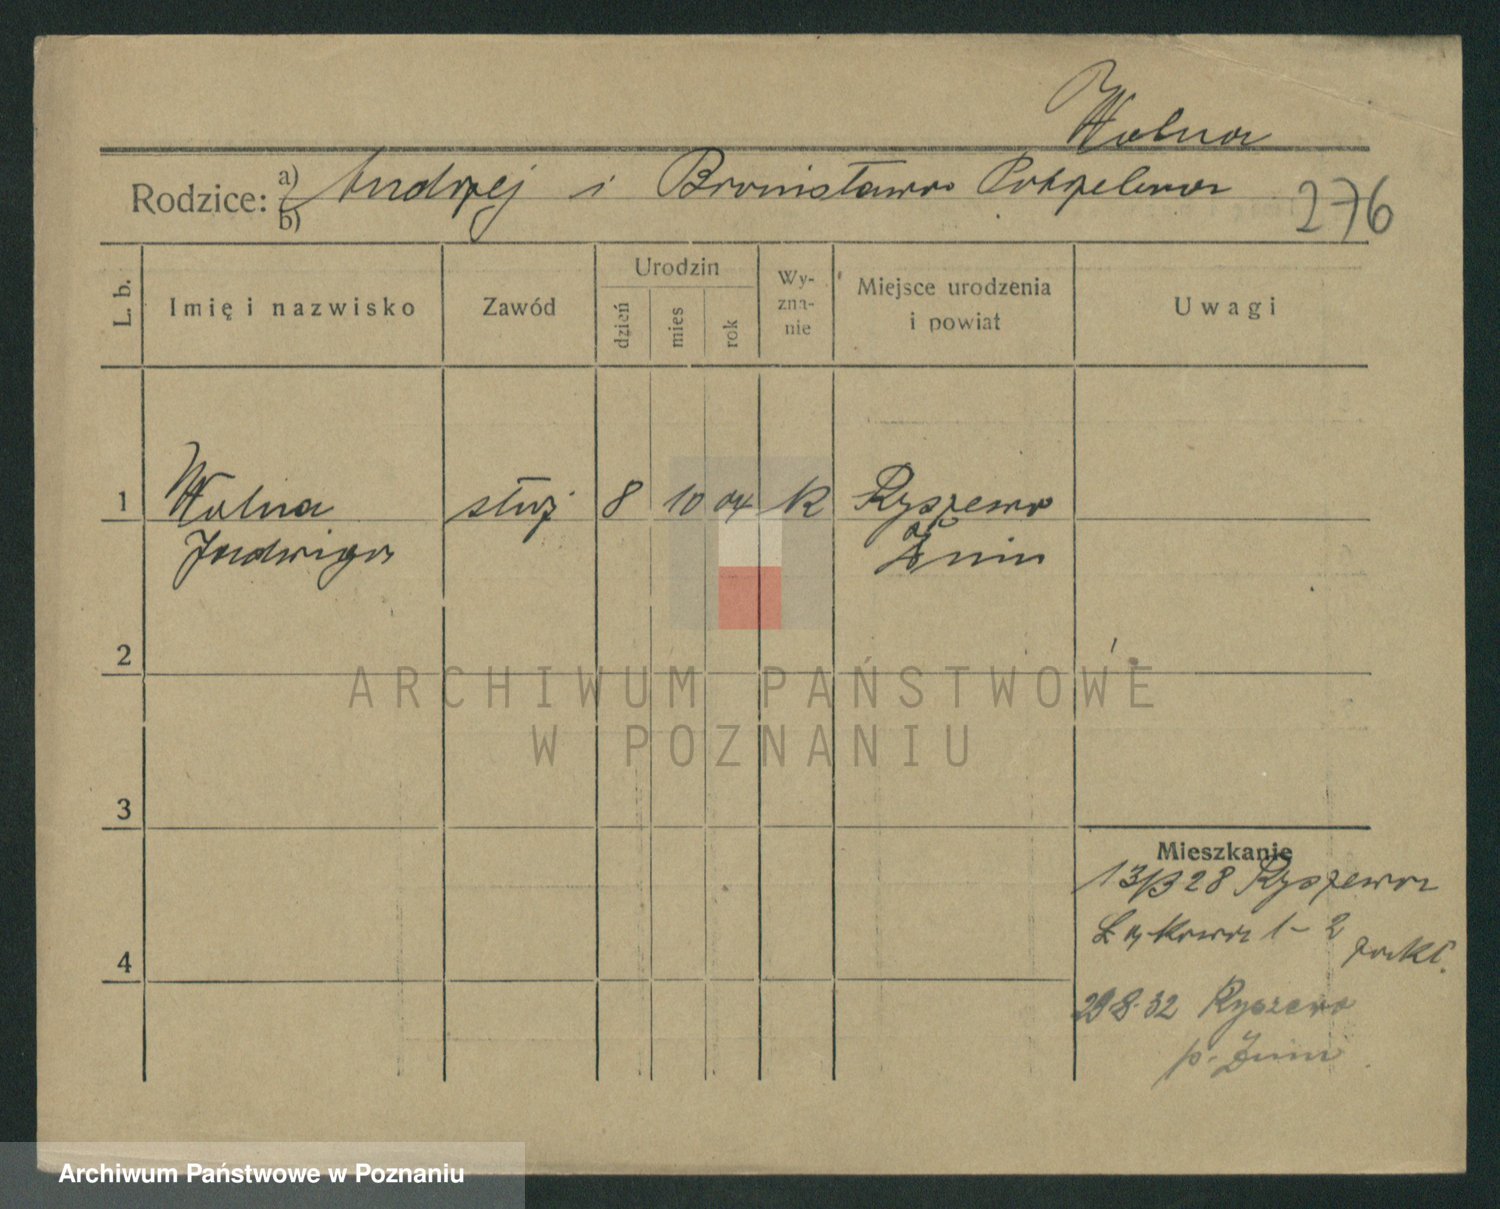 Wolna
Rodzice: a) Andrzej i Bronisława
b)
276
L. b.
Imię i nazwisko
Zawód
Urodzin
dzień
mies
rok
Wy-
zna-
nie
Miejsce urodzenia
i powiat
Uwagi
1 Wolna służ 8 10 04 K Ryszewo
Jadwiga Żnin
2
3
4
Mieszkanie
13/3 28 Ryszewo
Łąkowa 1-2
28.8.32 Ryszewo
p. Żnin
ARCHIWUM PAŃSTWOWE
W POZNANIU
Archiwum Państwowe w Poznaniu